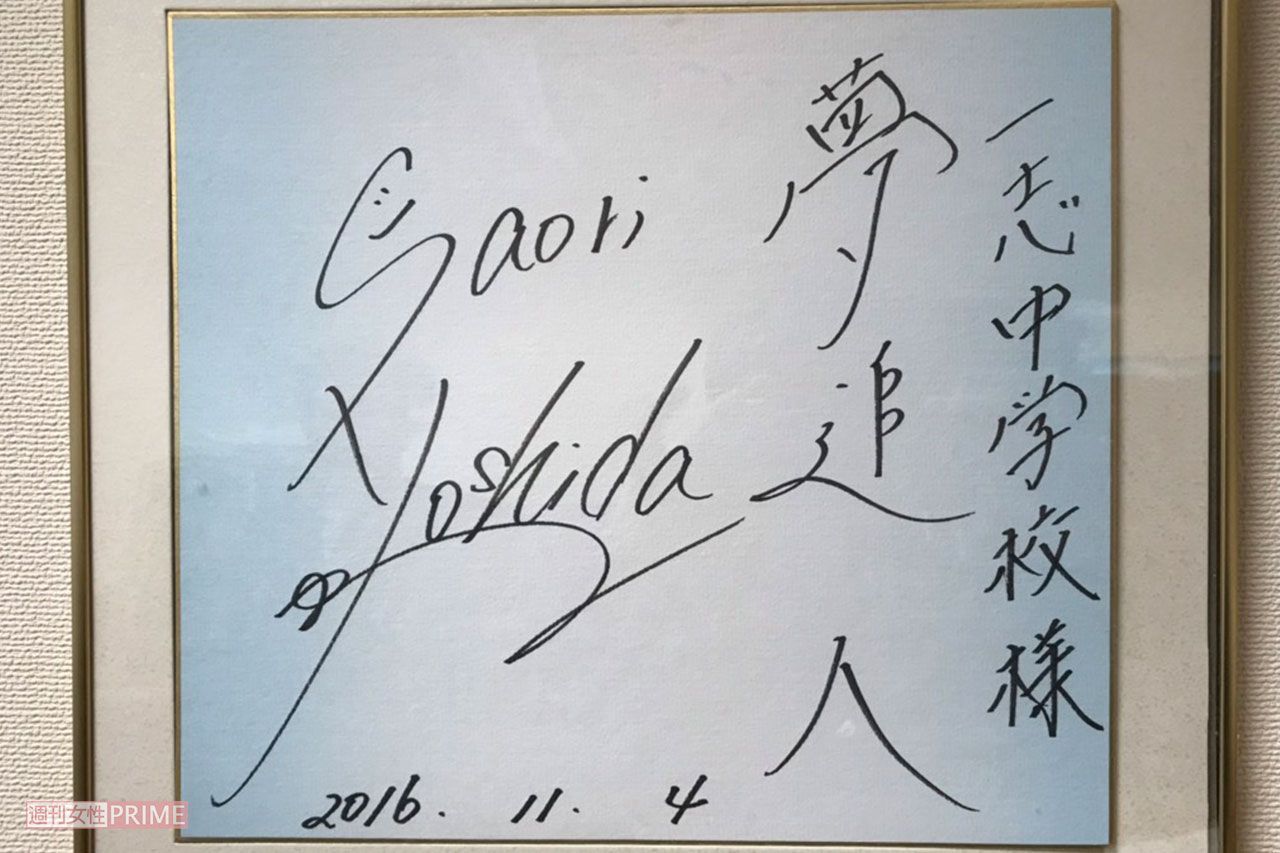 一志中学校様
夢追人
Saori
Yoshida
2016. 11. 4
週刊女性PRIME